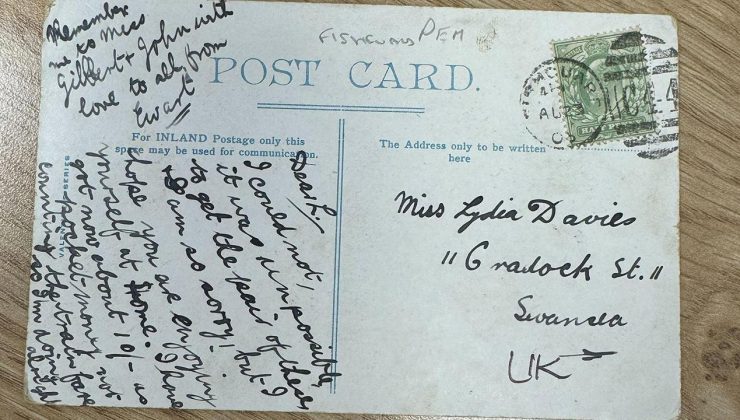 FISHGUARD PEM
POST CARD.
For INLAND Postage only this
space may be used for communication.
The Address only to be written
here
SERIES
Dear L,
I could not,
it was impossible,
to get the pair of these
I am so sorry! but I
hope you are enjoying
yourself at home. I have
got now about 10/- as
pocket-money not
counting the train fare
so I'm doing
alright
Remember
me to Miss
Gilbert + John with
love to all from
Ewart
FISHGUARD
AU
Miss Lydia Davies
11 Cradock St.
Swansea
UK